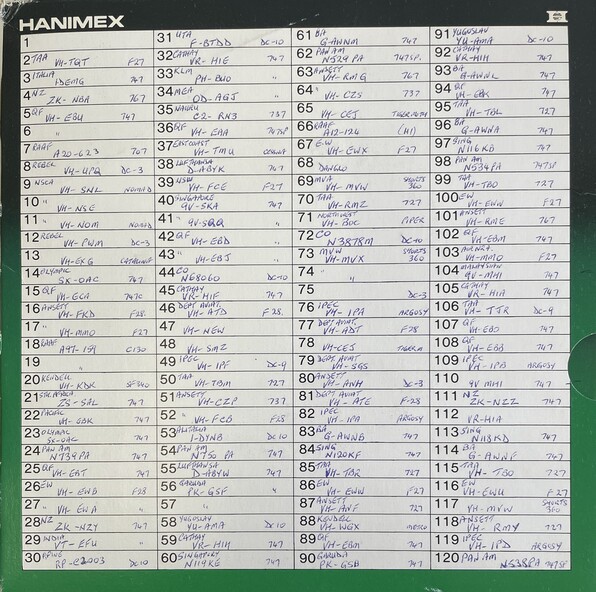 HANIMEX
1
2 TAA VH-TQT F27
3 ITALIA IDEMG 747
4 NZ ZK-NBA 767
5 QF VH-EBU 747
6 "
7 RAAF A20-623 707
8 REBEL VH-UPQ DC-3
9 NSCA VH-SNL NOMAD
10 " VH-NSE
11 " VH-NOM NOMAD
12 REBEL VH-PWM DC-3
13 VH-EXG
14 OLYMPIC SX-OAC 747
15 QF VH-ECA 747C
16 ANSETT VH-FKD F28
17 " VH-MMO F27
18 RAAF A97-159 C130
19 "
20 KENDELL VH-KDK SF340
21 ZS-SAL 747
22 PACIFIC VH-EBK 747
23 OLYMPIC SX-OAC 747
24 PAN AM N739PA 747
25 QF VH-EBT 747
26 EW VH-EWB F28
27 " VH-EWA "
28 NZ ZK-NZY 747
29 INDIA VT-EFU "
30 RP-C2003 DC10
31 UTA F-BTDD DC-10
32 CATHAY VR-HIE 747
33 KLM PH-BUO "
34 MEA OD-AGJ "
35 NAURU C2-RN3 737
36 QF VH-EAA 747SP
37 EAST COAST VH-TMU CESSNA
38 LUFTHANSA D-ABYK 747
39 NSW VH-FCE F27
40 SINGAPORE 9V-SKA 747
41 " 9V-SQQ "
42 QF VH-EBD "
43 " VH-EBJ "
44 CO N68060 DC10
45 CATHAY VR-HIF 747
46 DEPT AVIAT. VH-ATD F28
47 " VH-NEW
48 VH-SMZ
49 IPEC VH-IPF DC-9
50 TAA VH-TBM 727
51 ANSETT VH-CZP 737
52 " VH-FCB F28
53 ALITALIA I-DYNB DC10
54 PAN AM N750PA 747
55 LUFTHANSA D-ABYW 747
56 GARUDA PK-GSF "
57 "
58 YUGOSLAV YU-AMA DC10
59 CATHAY VR-HIH 747
60 SINGAPORE N119KE 747
61 BA G-AWNM 747
62 PAN AM N529PA 747SP
63 ANSETT VH-RMG 767
64 " VH-CZS 737
65 VH-CEJ TIGER MOTH
66 RAAF A12-124
67 E.W VH-EWX F27
68
69 MVA VH-MVW SHORTS 360
70 TAA VH-RMZ 727
71 VH-BUC PIPER
72 CO N3878M DC-10
73 MVW VH-MVX SHORTS 360
74 " "
75 DC-3
76 IPEC VH-IPA ARGOSY
77 DEPT AVIAT. VH-ADT F28
78 VH-CEJ TIGER M
79 DEPT. AVIAT VH-SGS
80 ANSETT VH-ANH DC-3
81 DEPT AVIAT VH-ATE F-28
82 IPEC VH-IPA ARGOSY
83 BA G-AWNB 747
84 SING N120KF 747
85 TAA VH-TBR 727
86 EW VH-EWW F27
87 ANSETT VH-ANF 727
88 KENDEL VH-WGX METRO
89 QF VH-EBM 747
90 GARUDA PK-GSH 747
91 YUGOSLAV YU-AMA DC-10
92 CATHAY VR-HIH 747
93 BA G-AWNL 747
94 QF VH-EBK 747
95 TAA VH-TBL 727
96 BA G-AWNA 747
97 SING N116KB 747
98 PAN AM N534PA 747SP
99 TAA VH-TBO 727
100 EW VH-EWW F27
101 ANSETT VH-RME 767
102 QF VH-EBM 747
103 AIR N.Z. VH-MMO F27
104 MALAYSIAN 9M-MHI 747
105 CATHAY VR-HIA 747
106 TAA VH-TJR DC-9
107 QF VH-EBO 747
108 QF VH-EBB 747
109 IPEC VH-IPB ARGOSY
110 9V MHI 747
111 NZ ZK-NZZ 747
112 VR-HIA
113 SING N118KD 747
114 BA G-AWNF 747
115 TAA VH-TBO 727
116 EW VH-EWU F27
117 VH-MVW SHORTS 360
118 ANSETT VH-RMY 727
119 IPEC VH-IPD ARGOSY
120 PAN AM N538PA 747SP